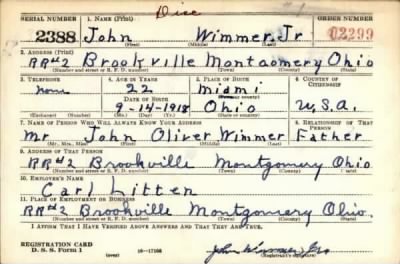 Disc
SERIAL NUMBER 1. NAME (Print) ORDER NUMBER
2388 John Wimmer Jr 02299
(First) (Middle) (Last)
2. ADDRESS (Print)
RR#2 Brookville Montgomery Ohio
(Number and street or R. F. D. number) (Town) (County) (State)
3. TELEPHONE 4. AGE IN YEARS 5. PLACE OF BIRTH 6. COUNTRY OF CITIZENSHIP
none 22 Miami
DATE OF BIRTH (Town or county)
9-14-1918 Ohio U.S.A.
(Exchange) (Number) (Mo.) (Day) (Yr.) (State or country)
7. NAME OF PERSON WHO WILL ALWAYS KNOW YOUR ADDRESS 8. RELATIONSHIP OF THAT PERSON
Mr John Oliver Wimmer Father
(Mr., Mrs., Miss) (First) (Middle) (Last)
9. ADDRESS OF THAT PERSON
RR#2 Brookville Montgomery Ohio
(Number and street or R. F. D. number) (Town) (County) (State)
10. EMPLOYER'S NAME
Carl Litten
11. PLACE OF EMPLOYMENT OR BUSINESS
RR#2 Brookville Montgomery Ohio.
(Number and street or R. F. D. number) (Town) (County) (State)
I AFFIRM THAT I HAVE VERIFIED ABOVE ANSWERS AND THAT THEY ARE TRUE.
REGISTRATION CARD
D. S. S. Form 1 (over) 16-17105 John Wimmer
(Registrant's signature)